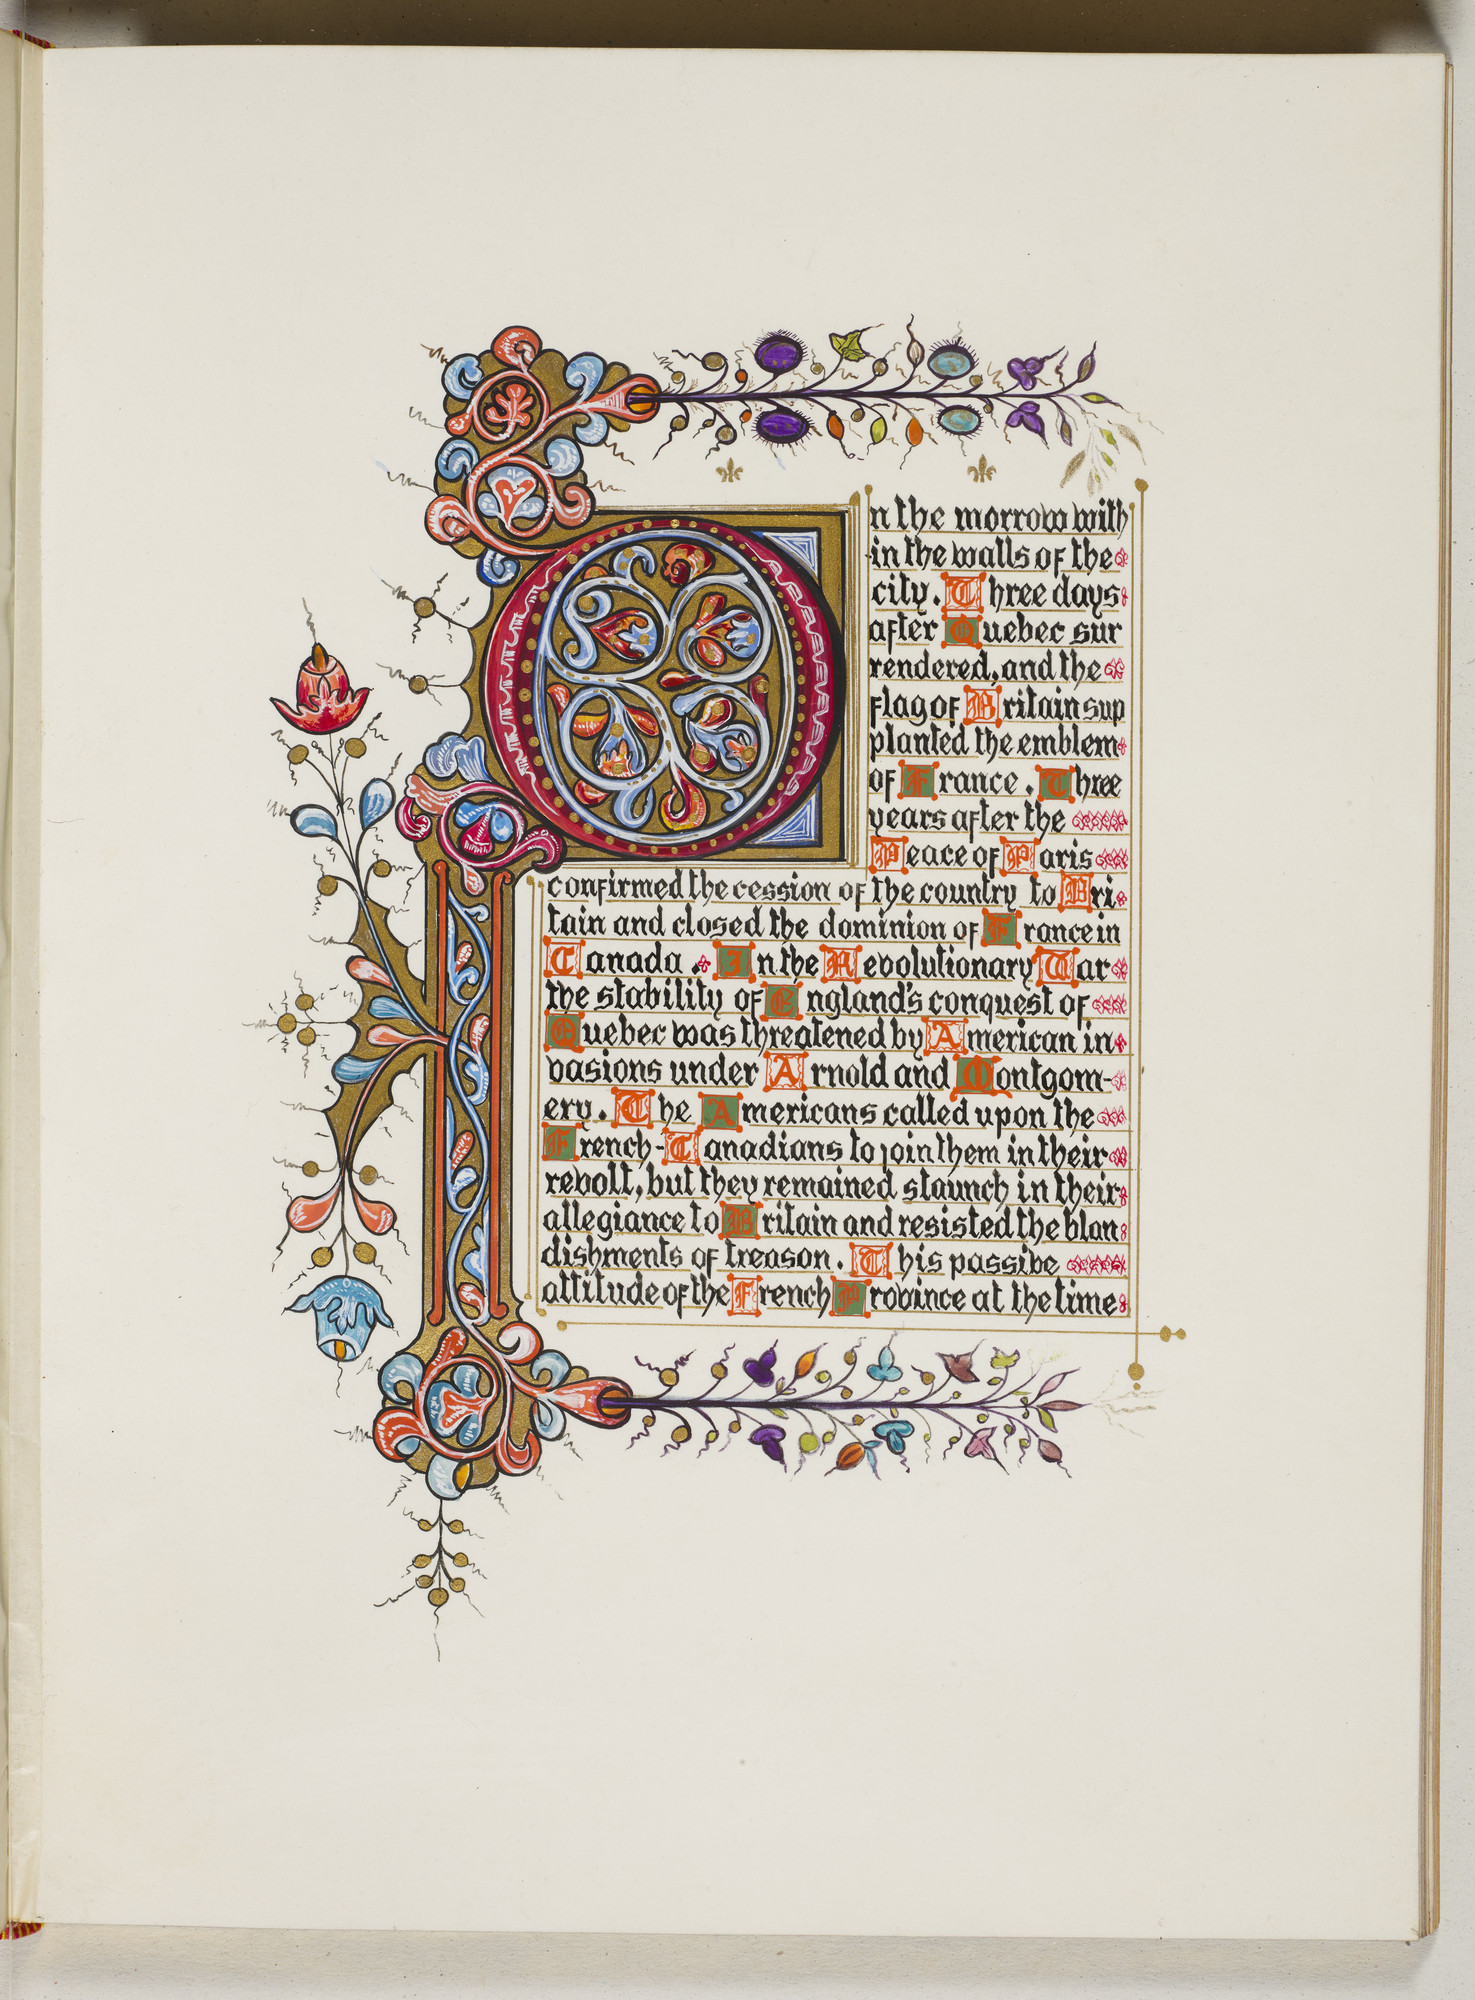 On the morrow with
in the walls of the
city. Three days
after Quebec sur
rendered, and the
flag of Britain sup
planted the emblem
of France. Three
years after the
Peace of Paris
confirmed the cession of the country to Bri
tain and closed the dominion of France in
Canada. In the Revolutionary War
the stability of England's conquest of
Quebec was threatened by American in
vasions under Arnold and Montgom-
ery. The Americans called upon the
French-Canadians to join them in their
revolt, but they remained staunch in their
allegiance to Britain and resisted the blan
dishments of treason. This passive
attitude of the French Province at the time